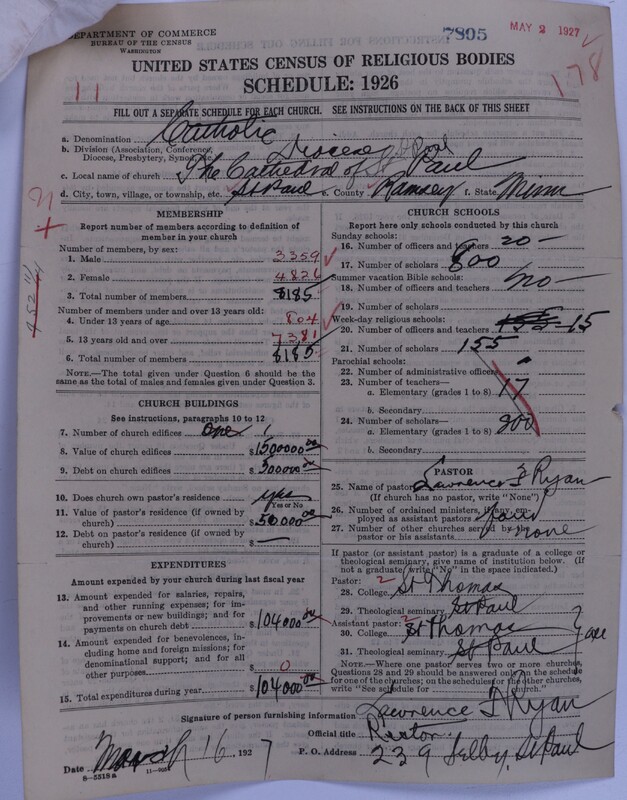 DEPARTMENT OF COMMERCE
BUREAU OF THE CENSUS
WASHINGTON
7805
MAY 2 1927
178
11
UNITED STATES CENSUS OF RELIGIOUS BODIES
SCHEDULE: 1926
FILL OUT A SEPARATE SCHEDULE FOR EACH CHURCH. SEE INSTRUCTIONS ON THE BACK OF THIS SHEET
a. Denomination Catholic
b. Division (Association, Conference, Diocese, Presbytery, Synod, etc.) Diocese St Paul
c. Local name of church The Cathedral of St Paul
d. City, town, village, or township, etc. St Paul e. County Ramsey f. State Minn
MEMBERSHIP
Report number of members according to definition of
member in your church
Number of members by sex:
1. Male 3359
2. Female 4826
3. Total number of members 8185
Number of members under and over 13 years old:
4. Under 13 years of age 804
5. 13 years old and over 7381
6. Total number of members 8185
NOTE.—The total given under Question 6 should be
same as the total of males and females given under Question 3.
CHURCH BUILDINGS
See instructions, paragraphs 10 to 12
7. Number of church edifices one 1
8. Value of church edifices $1500000 00
9. Debt on church edifices $300000 00
10. Does church own pastor's residence yes
Yes or No
11. Value of pastor's residence (if owned by
church) $50000 00
12. Debt on pastor's residence (if owned by
church) $ —
EXPENDITURES
Amount expended by your church during last fiscal year
13. Amount expended for salaries, repairs,
and other running expenses; for im-
provements or new buildings; and for
payments on church debt $104000 00
14. Amount expended for benevolences, in-
cluding home and foreign missions; for
denominational support; and for all
other purposes $ 0
15. Total expenditures during year $104000 00
CHURCH SCHOOLS
Report here only schools conducted by this church
Sunday schools:
16. Number of officers and teachers 20 —
17. Number of scholars 600
Summer vacation Bible schools:
18. Number of officers and teachers no —
19. Number of scholars
Week-day religious schools:
20. Number of officers and teachers 155 15
21. Number of scholars 155
Parochial schools:
22. Number of administrative officers
23. Number of teachers—
a. Elementary (grades 1 to 8) 17
b. Secondary
24. Number of scholars—
a. Elementary (grades 1 to 8) 900
b. Secondary
PASTOR
25. Name of pastor Lawrence F Ryan
(If church has no pastor, write "None")
26. Number of ordained ministers, if any, em-
ployed as assistant pastors four
27. Number of other churches served by the
pastor or his assistants none
If pastor (or assistant pastor) is a graduate of a college or
theological seminary, give name of institution below. (If
not a graduate, write "No" in the space indicated.)
Pastor:
28. College 2 St Thomas
29. Theological seminary St Paul
Assistant pastor: 2
30. College St Thomas
31. Theological seminary St Paul
NOTE.—Where one pastor serves two or more churches,
Questions 28 and 29 should be answered only on the schedule
for one of the churches; on the schedules for the other churches,
write "See schedule for church."
Signature of person furnishing information Lawrence F Ryan
Official title Rector
Date March 16 1927
P. O. Address 239 Selby, St Paul
8-5518a